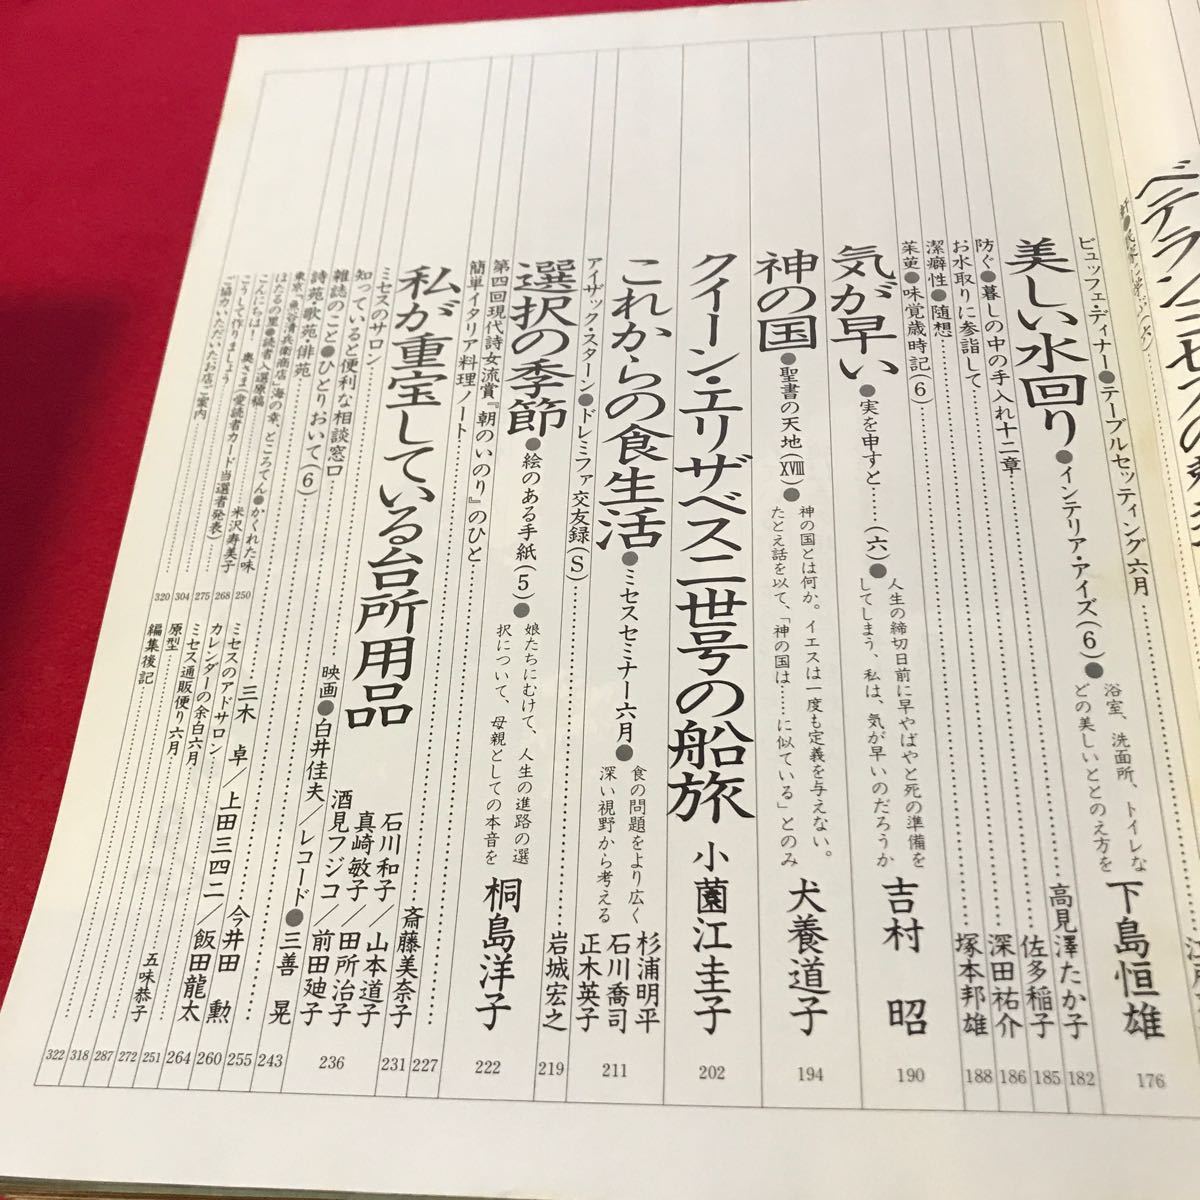 美しい水回り●インテリア・アイズ(6)●
浴室、洗面所、トイレな
どの美しいととのえ方を
下島恒雄
176
ビュッフェ・ディナー●テーブルセッティング六月
高見澤たか子
182
防ぐ●暮しの中の手入れ十二章
佐多稲子
185
お水取りに参詣して
深田祐介
186
潔癖性●随想
塚本邦雄
188
茱萸●味覚歳時記(6)
気が早い●実を申すと……(六)●
人生の締切日前に早やばやと死の準備を
してしまう、私は、気が早いのだろうか
吉村 昭
190
神の国●聖書の天地(XVIII)●
神の国とは何か。イエスは一度も定義を与えない。
たとえ話を以て、「神の国は……に似ている」とのみ
犬養道子
194
クイーン・エリザベス二世号の船旅
小薗江圭子
202
これからの食生活●ミセスセミナー六月●
食の問題をより広く
深い視野から考える
杉浦明平
石川喬司
正木英子
211
アイザック・スターン●ドレミファ交友録(S)
岩城宏之
219
選択の季節●絵のある手紙(5)●
娘たちにむけて、人生の進路の選
択について、母親としての本音を
桐島洋子
222
第四回現代詩女流賞『朝のいのり』のひと
227
簡単イタリア料理ノート
斎藤美奈子
231
私が重宝している台所用品
石川和子/山本道子
真崎敏子/田所治子
酒見フジコ/前田廸子
236
ミセスのサロン
映画●白井佳夫/レコード●三善 晃
243
知っていると便利な相談窓口
255
雑誌のこと●ひとりおいて(6)
今井田 勲
260
詩苑・歌苑・俳苑
三木 卓/上田三四二/飯田龍太
264
東京「魚谷清兵衛商店」海の幸、ところてん●かくれた味
250
ほたるの里●読者入選原稿
米沢寿美子
268
こんにちは! 奥さま(愛読者カード当選者発表)
275
こうして作りましょう
304
ご協力いただいたお店ご案内
320
ミセスのアドサロン
251
カレンダーの余白六月
五味恭子
272
ミセス通販便り六月
287
原型
318
編集後記
322